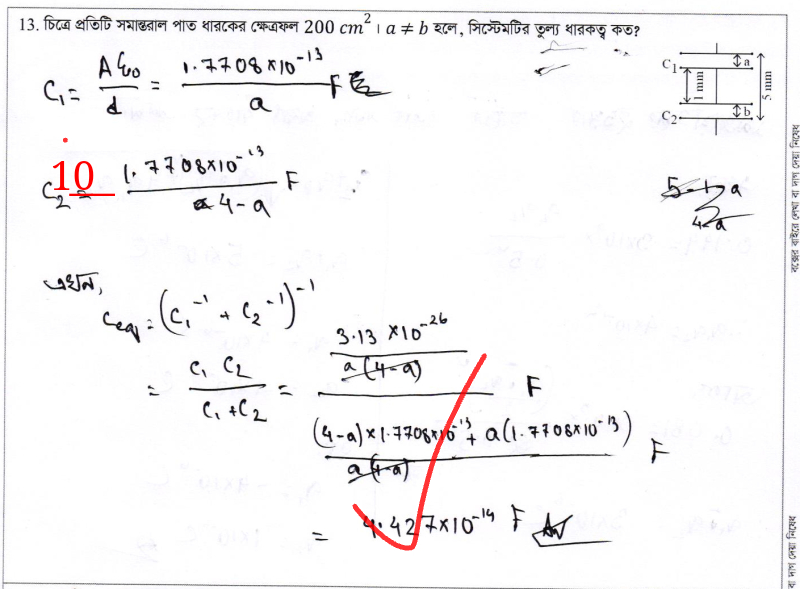 13. চিত্রে প্রতিটি সমান্তরাল পাত ধারকের ক্ষেত্রফল 200 cm² । a ≠ b হলে, সিস্টেমটির তুল্য ধারকত্ব কত?
C₁ a
1 mm
5 mm
C₂ b
C₁ = Aε₀/d = 1.7708×10⁻¹³/a F
10
C₂ = 1.7708×10⁻¹³/4-a F
5-1-a
4-a
এখন,
Ceq = (C₁⁻¹ + C₂⁻¹)⁻¹
= C₁C₂/C₁+C₂ = 3.13×10⁻²⁶/a(4-a) F
(4-a)×1.7708×10⁻¹³ + a(1.7708×10⁻¹³)/a(4-a) F
= 4.427×10⁻¹⁴ F
বক্সের বাইরে লেখা বা দাগ দেয়া নিষেধ
বা দাগ দেয়া নিষেধ